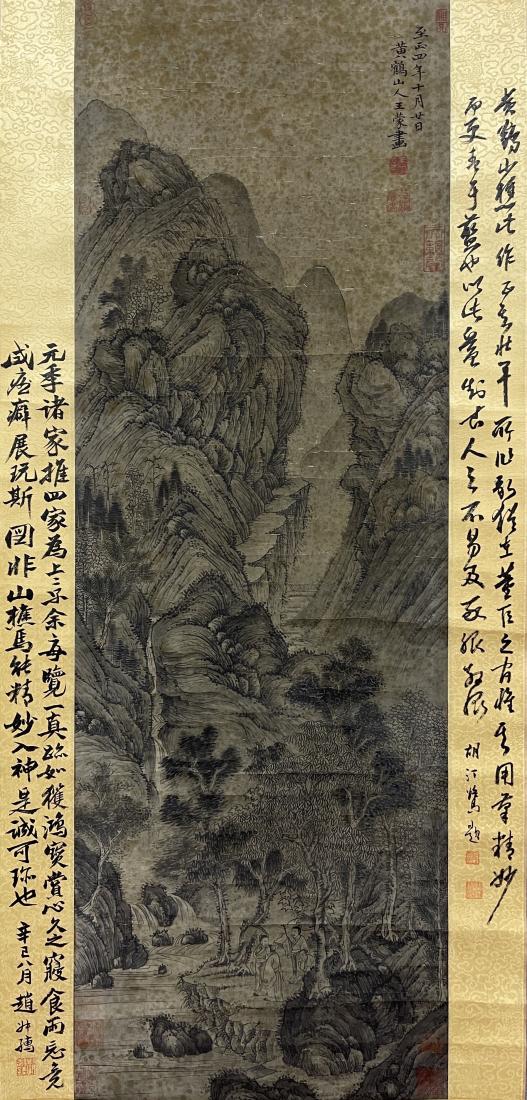 黄鶴山樵此作正其壯年所作 猶在董巨之 惟其用筆精妙
而更青于藍也以此 古人之不易及敬服敬服 胡汀鷺題
至正四年十月廿日
黄鶴山人王蒙畫
元季諸家推四家為上 余每覽一真跡如獲鴻寶賞心久之寢食兩忘竟
成痼癖展玩斯圖非山樵焉能精妙入神是誠可珍也 辛巳八月趙叔孺